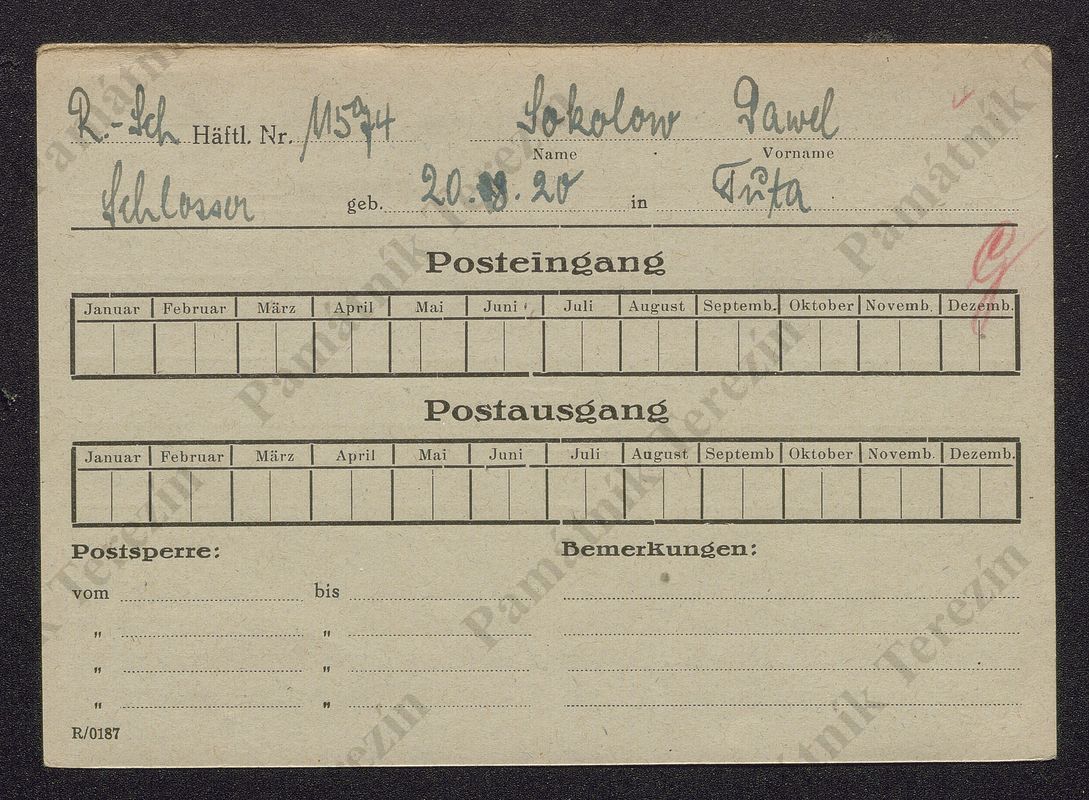 R.-Sch Häftl. Nr. 11574 Sokolow Pawel
Name Vorname
Schlosser geb. 20. 08. 20 in Tuła
Posteingang
Januar Februar März April Mai Juni Juli August Septemb. Oktober Novemb. Dezemb.
Postausgang
Januar Februar März April Mai Juni Juli August Septemb Oktober Novemb. Dezemb.
Postsperre: Bemerkungen:
vom bis
„ „
„ „
„ „
R/0187
Památník Terezín